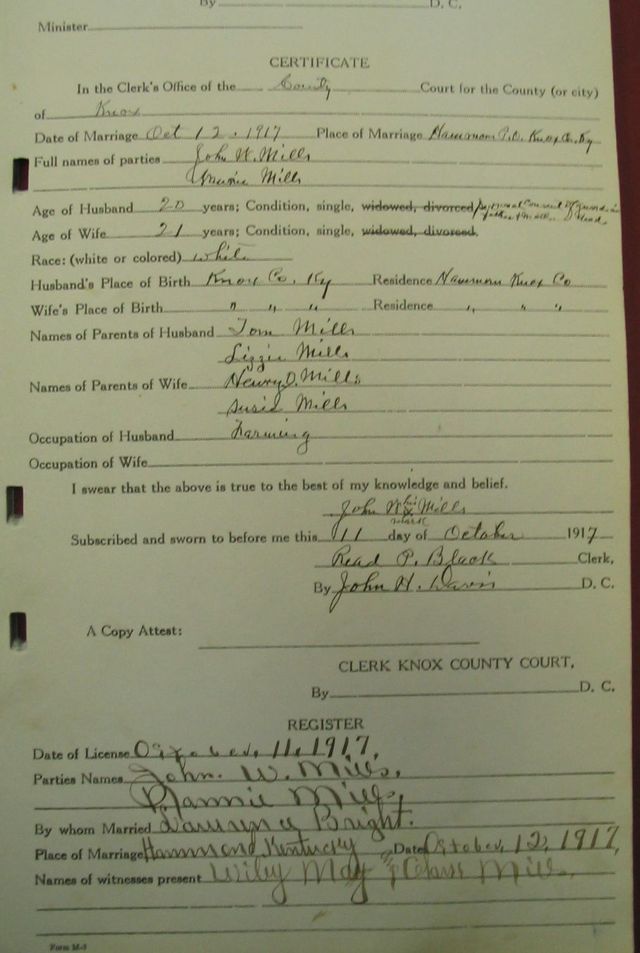 By D. C.
Minister
CERTIFICATE
In the Clerk's Office of the County Court for the County (or city)
of Knox
Date of Marriage Oct 12, 1917 Place of Marriage Hammon P.O. Knox Co. Ky
Full names of parties John W. Mills
Mills
Age of Husband 20 years; Condition, single, widowed, divorced personal Consent of
father & mother Dead
Age of Wife 21 years; Condition, single, widowed, divorced.
Race: (white or colored) white
Husband's Place of Birth Knox Co. Ky Residence Hammon Knox Co
Wife's Place of Birth " " " Residence " " "
Names of Parents of Husband Tom Mills
Lizzie Mills
Names of Parents of Wife Henry D. Mills
Susie Mills
Occupation of Husband Farming
Occupation of Wife
I swear that the above is true to the best of my knowledge and belief.
John W his x mark Mills
Subscribed and sworn to before me this 11 day of October 1917
Read P. Black Clerk,
By John H. Davis D. C.
A Copy Attest:
CLERK KNOX COUNTY COURT,
By D. C.
REGISTER
Date of License October, 11, 1917,
Parties Names John. W. Mills,
Mills,
By whom Married Bright.
Place of Marriage Hammond Kentucky Date October, 12, 1917,
Names of witnesses present Wiley May
Form M-3